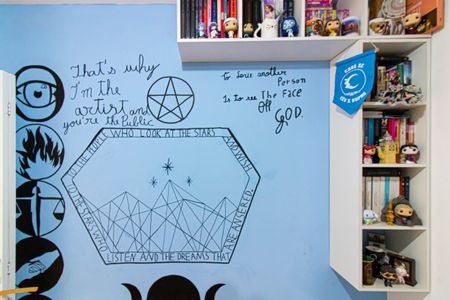 That's why
I'm the
artist and
you're the Public
to love another Person
Is to see The Face
Off
GOD.
TO THE PEOPLE
WHO LOOK AT THE STARS
AND WISH
TO THE STARS WHO
LISTEN AND THE DREAMS THAT
ARE ANSERED.
CASA DE
CÉU E SOPRO